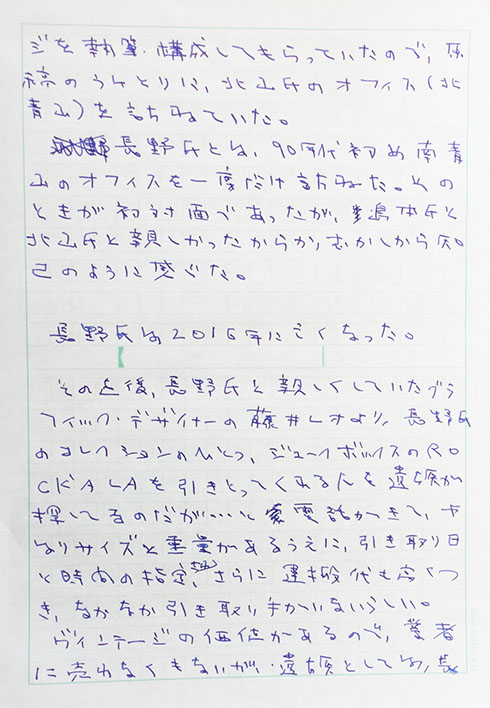 ジを執筆・構成してもらっていたので、原
稿のうけとりに、北山氏のオフィス（北
青山）を訪ねていた。
長野氏とは、90年代初め南青
山のオフィスを一度だけ訪ねた。その
ときが初対面であったが、島本氏と
北山氏と親しかったからか、むかしから知
己のように感じた。
長野氏は2016年に亡くなった。
その直後、長野氏と親しくしていたグラ
フィック・デザイナーの藤井レオより、長野氏
のコレクションのひとつ、ジュークボックスのRO
CKALAを引きとってくれる人を遺族が
探してるのだが……と電話がきて、か
なりサイズと重量があるうえに、引き取り日
と時間の指定、さらに運搬代も高くつ
き、なかなか引き取り手がいないらしい。
ヴィンテージの価値があるので、業者
に売れなくもないが、遺族としては、長